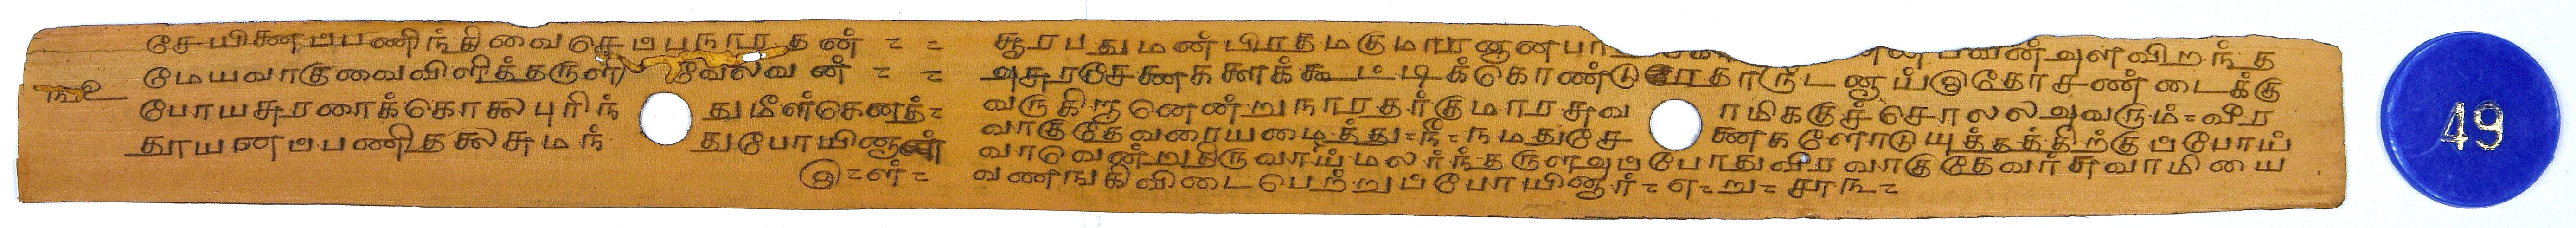 சேயினைப்பணிந்திவைசெப்புநாரதன் = =
மேயவாகுவைவிளித்தருளி வேலவன் = =
போயசுரரைக்கொலைபுரிந் துமீள்கெனத்=
தூயனைப்பணிதலைசுமந் துபோயினான்
௫=ள்=
சூரபதுமன் பிரதமகுமாரனானபா னன்பவன்அளவிறந்த
அசுரசேனைகளைக்கூட்டிக்கொண்டு தாருடனாய்இதோசண்டைக்கு
வருகிறானென்றுநாரதர்குமாரசுவ ாமிக்குச்சொலலஅவரும்=வீர
வாகுதேவரையழைத்து=நீ=நமதுசே னைகளோடுயுத்தத்திற்குப்போய்
வாவென்றுதிருவாய்மலர்ந்தருளஅப்போதுவீரவாகுதேவர்சுவாமியை
வணங்கிவிடைபெற்றுப்போயினார்=எ=று=
49